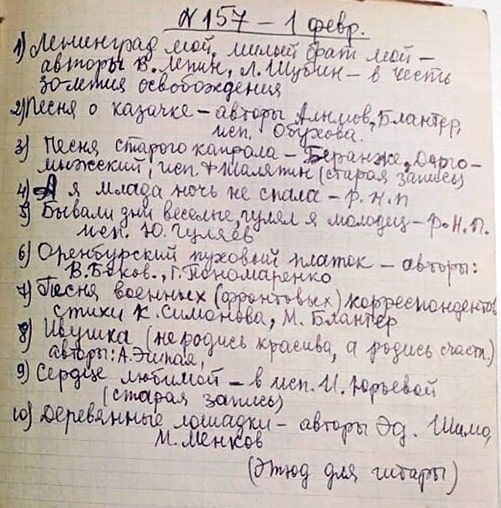 №157 – 1 февр.
1) Ленинград мой, милый брат мой –
авторы В. Лепин, Л. Шубин – в честь
30летия освобождения
2) Песня о казачке – авторы Алымов, Блантер,
исп. Обухова.
3) Песня старого капрала – Беранже, Дарго-
мыжский, исп. Шаляпин (старая запись)
4) А я млада ночь не спала – р.н.п
5) Бывали дни веселые, гулял я молодец – р.н.п.
исп. Ю. Гуляев
6) Оренбургский пуховый платок – авторы:
В. Боков., Г. Пономаренко
7) Песня военных (фронтовых) корреспондентов
стихи К. Симонова, М. Блантер
8) Ивушка (не родись красива, а родись счастл.)
авторы: А.
9) Сердце любимой – в исп. И. Юрьевой
(старая запись)
10) Деревянные лошадки – авторы Эд. Шимо,
М. Менков
(Этюд для гитары)